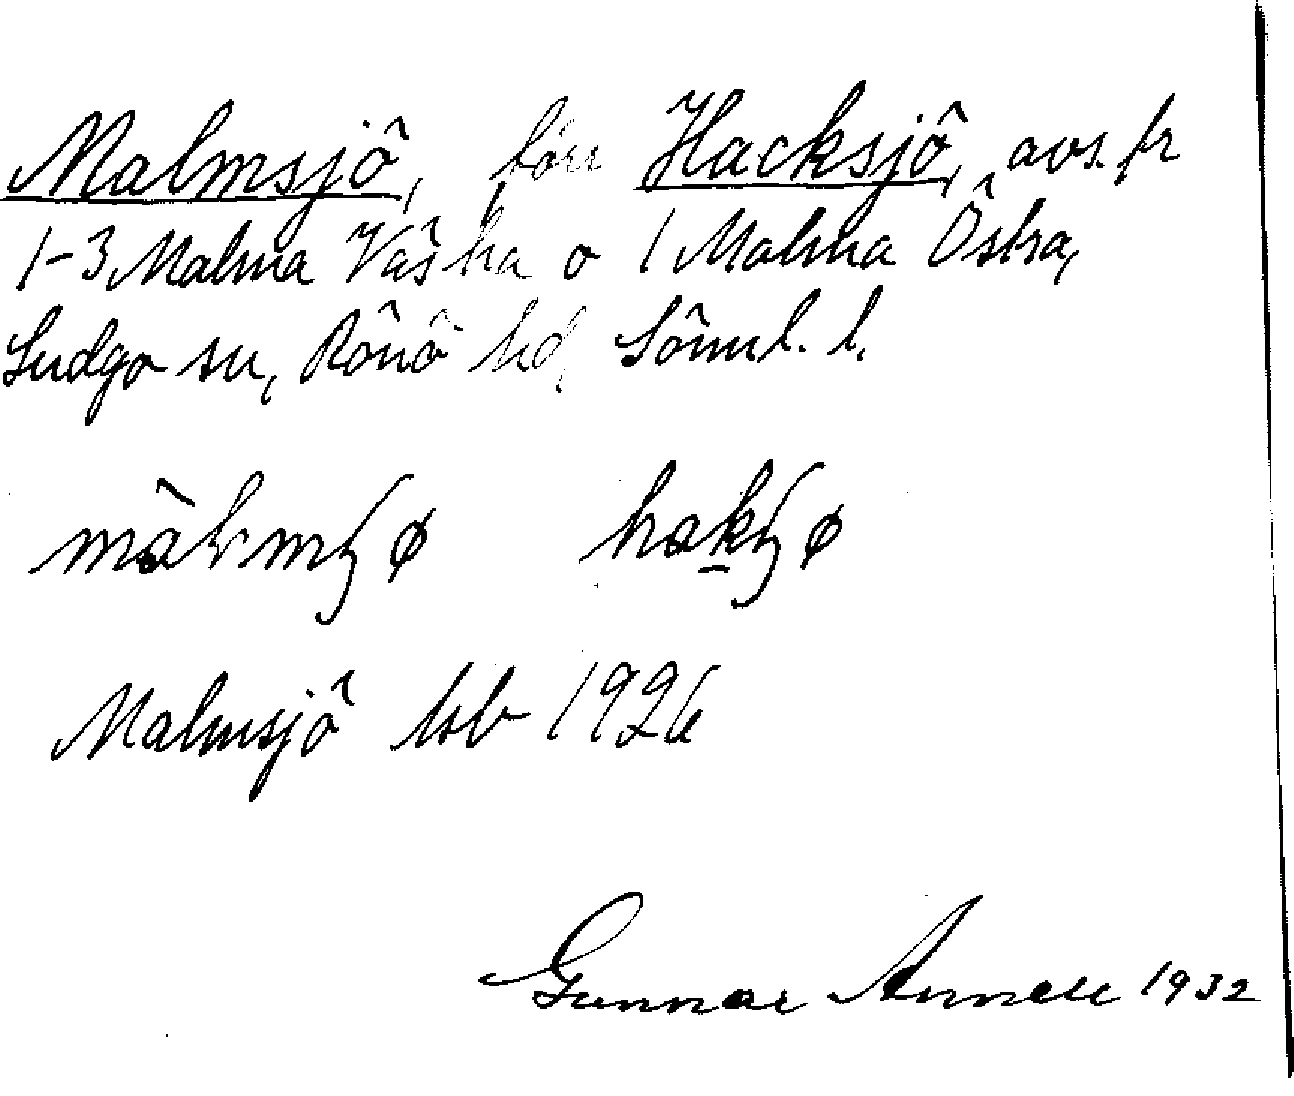 Malmsjö, förr Hacksjö, avs. fr
1-3 Malma Västra o 1 Malma Östra,
Ludgo sn, Rönö hd, Söruml. l.
hakʃø
Malmsjö lsb 1926
Gunnar Annell 1932